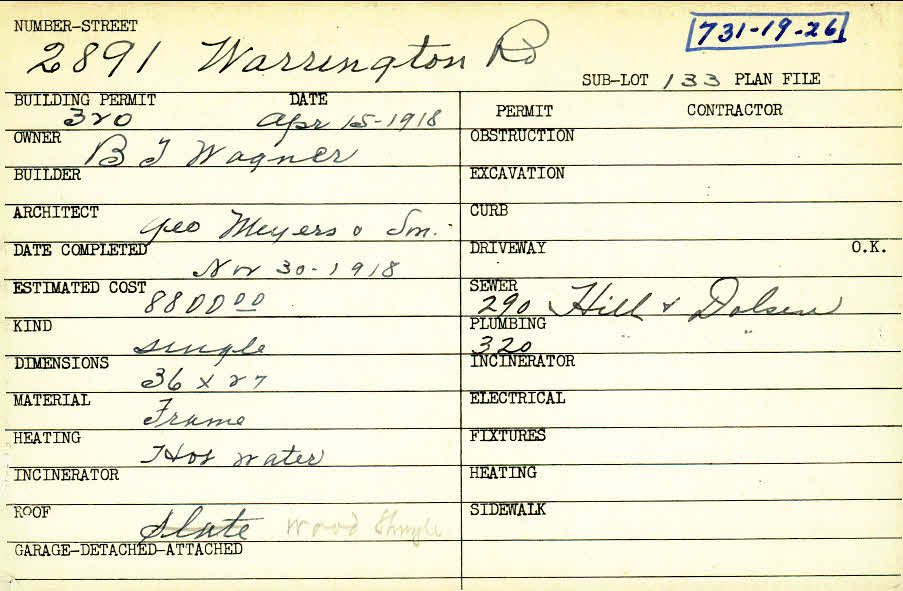 NUMBER-STREET
2891 Warrington Rd
731-19-26
SUB-LOT 133 PLAN FILE
BUILDING PERMIT DATE
320 Apr 15-1918
OWNER
B J Wagner
BUILDER
ARCHITECT
Geo Meyers & Son.
DATE COMPLETED
Nov 30-1918
ESTIMATED COST
8800 00
KIND
single
DIMENSIONS
36 x 27
MATERIAL
Frame
HEATING
Hot water
INCINERATOR
ROOF
Slate Wood Shingle
GARAGE-DETACHED-ATTACHED
PERMIT CONTRACTOR
OBSTRUCTION
EXCAVATION
CURB
DRIVEWAY O.K.
SEWER
290 Hill & Dolsen
PLUMBING
320 " "
INCINERATOR
ELECTRICAL
FIXTURES
HEATING
SIDEWALK